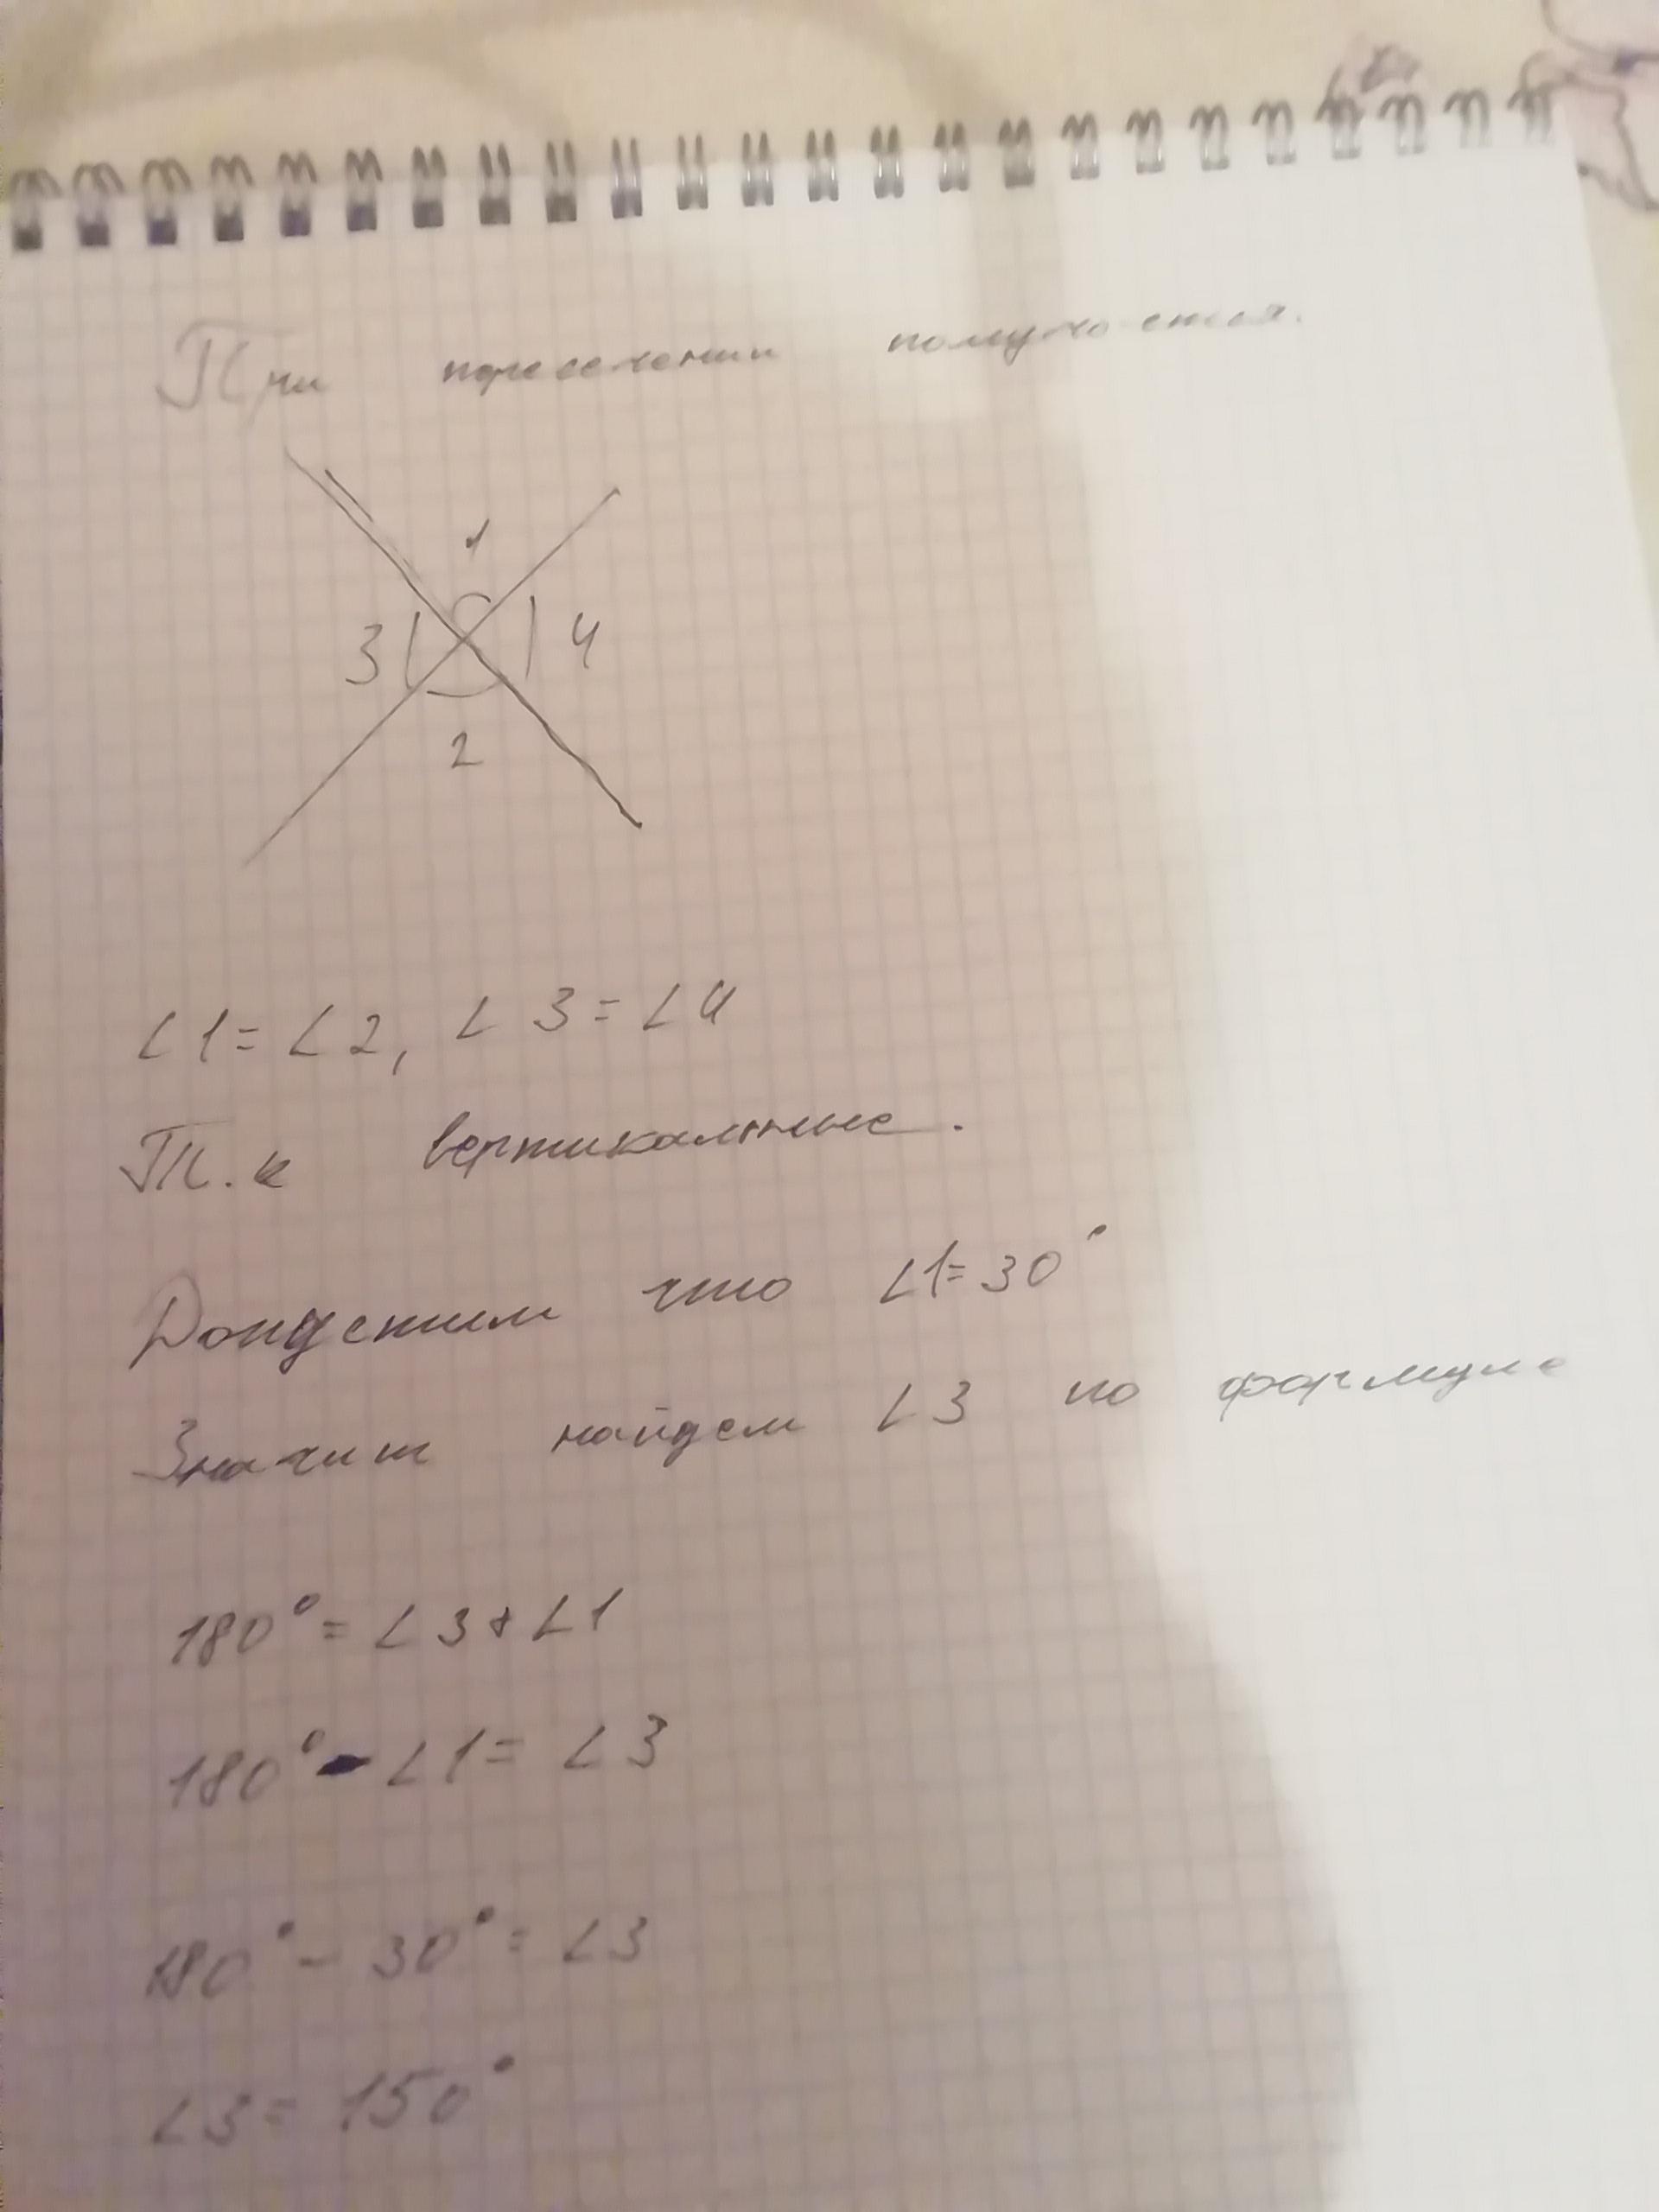 При пересечении получается.
1
3 4
2
∠1=∠2, ∠3=∠4
Т.к вертикальные.
Допустим что ∠1=30°
Значит найдем ∠3 по формуле
180°=∠3+∠1
180°-∠1=∠3
180°-30°=∠3
∠3=150°